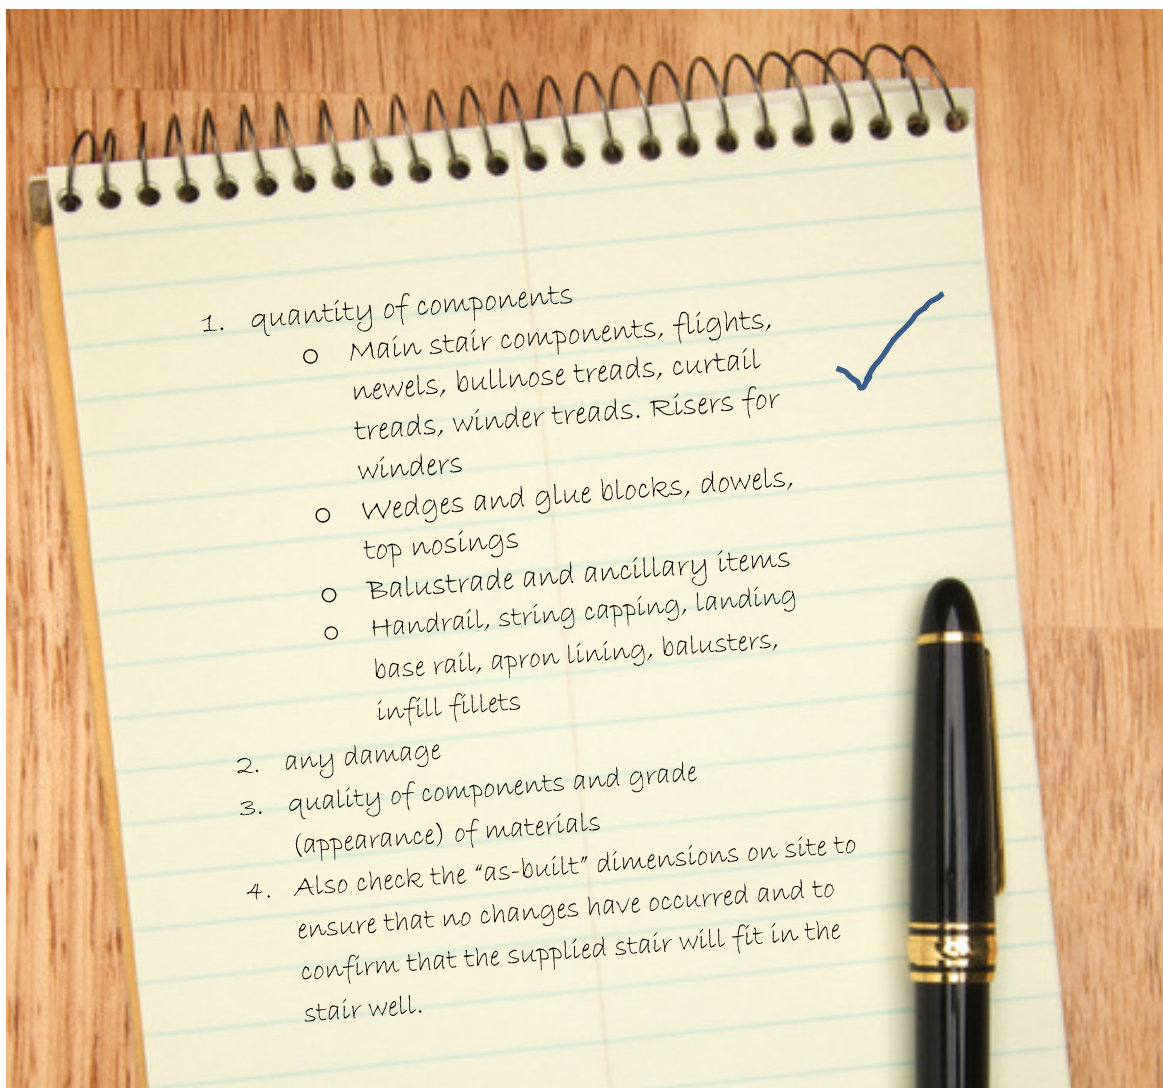 1. quantity of components
o Main stair components, flights,
newels, bullnose treads, curtail
treads, winder treads. Risers for
winders
o Wedges and glue blocks, dowels,
top nosings
o Balustrade and ancillary items
o Handrail, string capping, landing
base rail, apron lining, balusters,
infill fillets
2. any damage
3. quality of components and grade
(appearance) of materials
4. Also check the “as-built” dimensions on site to
ensure that no changes have occurred and to
confirm that the supplied stair will fit in the
stair well.